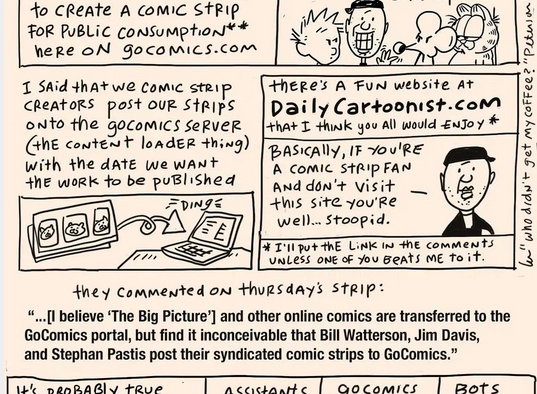 to CREATE A COMIC STRIP
FOR PUBLIC CONSUMPTION**
here ON gocomics.com
I SAID that we COMIC STRIP
CREATORS POST OUR STRIPS
ONTO the GOCOMICS SERVER
(the CONTENT LOADER thing)
with the DATE WE WANT
the WORK to be PUBLISHED
DING
theRE'S A FUN website At
DailyCartoonist.com
that I think you All would ENJOY *
BASICALLY, IF YOU'RE
A COMIC STRIP FAN
AND DON'T VISIT
this site you're
well... stoopid.
* I'll put the LINK IN the COMMENTS
UNLESS ONE OF YOU BEATS ME to it.
who didn't get my coffee?"
they COMMENTED ON thURSDAY'S StRIP:
“...[I believe ‘The Big Picture’] and other online comics are transferred to the
GoComics portal, but find it inconceivable that Bill Watterson, Jim Davis,
and Stephan Pastis post their syndicated comic strips to GoComics.”
It's PROBABLY TRUE
ASSISTANTS
GOCOMICS
BOTS